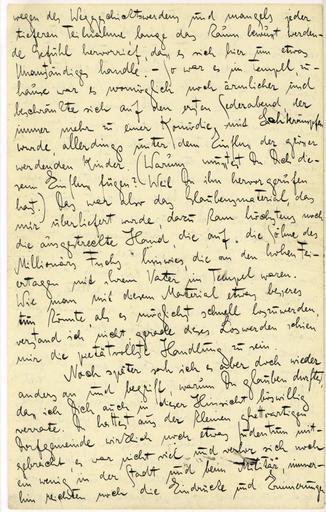 wegen des Weggeschicktwerdens und mangels jeder
tieferen Teilnahme lange das kaum bewusst werden-
de Gefühl hervorrief, dass es sich hier um etwas
Unanständiges handle. – So war es im Tempel, zu-
hause war es womöglich noch ärmlicher und
beschränkte sich auf den ersten Sederabend, der
immer mehr zu einer Komödie mit Lachkrämpfen
wurde, allerdings unter dem Einfluss der grösser
werdenden Kinder. (Warum musstest Du Dich die-
sem Einfluss fügen? Weil Du ihn hervorgerufen
hast.) Das war also das Glaubensmaterial, das
mir überliefert wurde, dazu kam höchstens noch
die ausgestreckte Hand, die auf „die Söhne des
Millionärs Fuchs" hinwies, die an den hohen Fei-
ertagen mit ihrem Vater im Tempel waren.
Wie man mit diesem Material etwas besseres
tun könnte, als es möglichst schnell loszuwerden,
verstand ich nicht; gerade dieses Loswerden schien
mir die pietätvollste Handlung zu sein.
Noch später sah ich es aber doch wieder
anders an und begriff, warum Du glauben durftest,
dass ich Dich auch in dieser Hinsicht böswillig
verrate. Du hattest aus der kleinen ghettoartigen
Dorfgemeinde wirklich noch etwas Judentum mit-
gebracht, es war nicht viel und verlor sich noch
ein wenig in der Stadt und beim Militär, immer-
hin reichten noch die Eindrücke und Erinnerungen